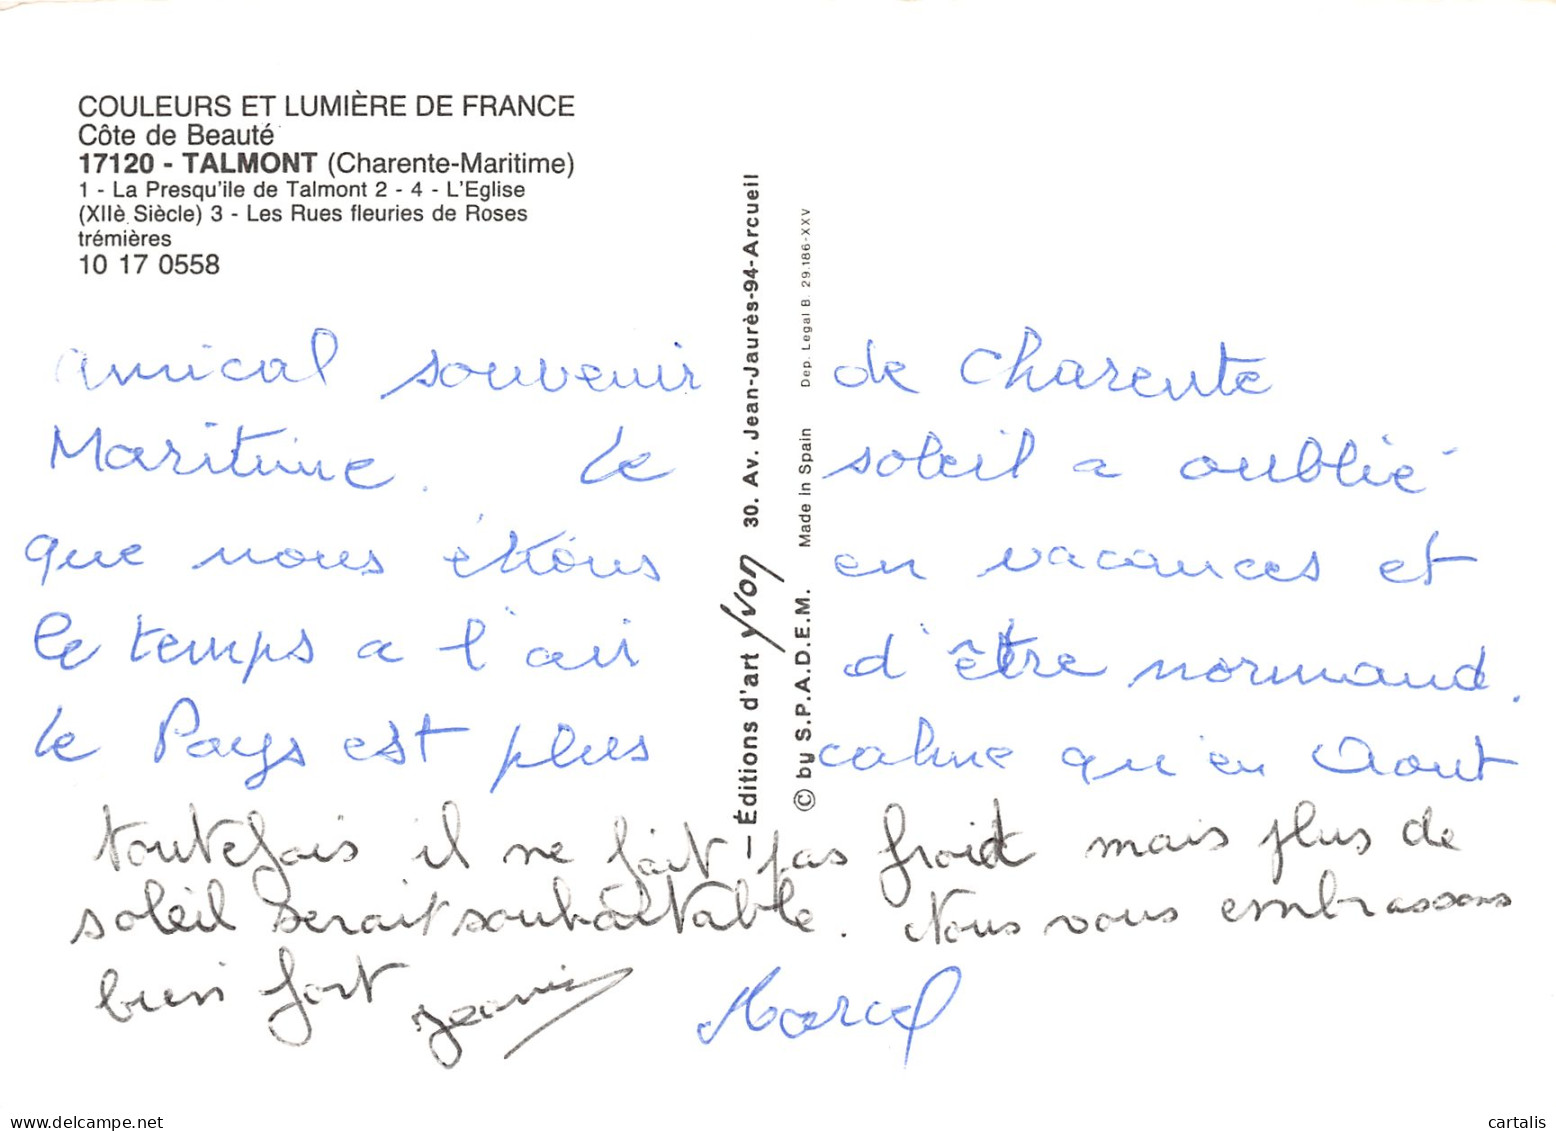 COULEURS ET LUMIÈRE DE FRANCE
Côte de Beauté
17120 - TALMONT (Charente-Maritime)
1 - La Presqu'ile de Talmont 2 - 4 - L'Eglise
(XIIè Siècle) 3 - Les Rues fleuries de Roses
trémières
10 17 0558
— Éditions d'art Yvon 30. Av. Jean-Jaurès-94-Arcueil
© by S.P.A.D.E.M. Made in Spain Dep. Legal B. 29.186-XXV
amical souvenir de Charente
Maritime. Le soleil a oublié
que nous étions en vacances et
le temps a l'air d'être normand.
le Pays est plus calme qu'en Aout
toutefois il ne fait pas froid mais plus de
soleil serait souhaitable. Nous vous embrassons
bien fort Jeannie Marcel
delcampe.net
cartalis